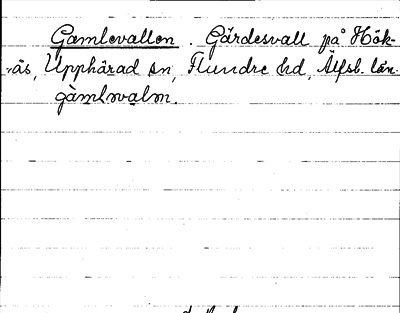 Gamlevallen. Gärdesvall på Hök-
näs, Upphärad sn, Flundre hd, Älfsb. län.
gàmlɷvalɷn.